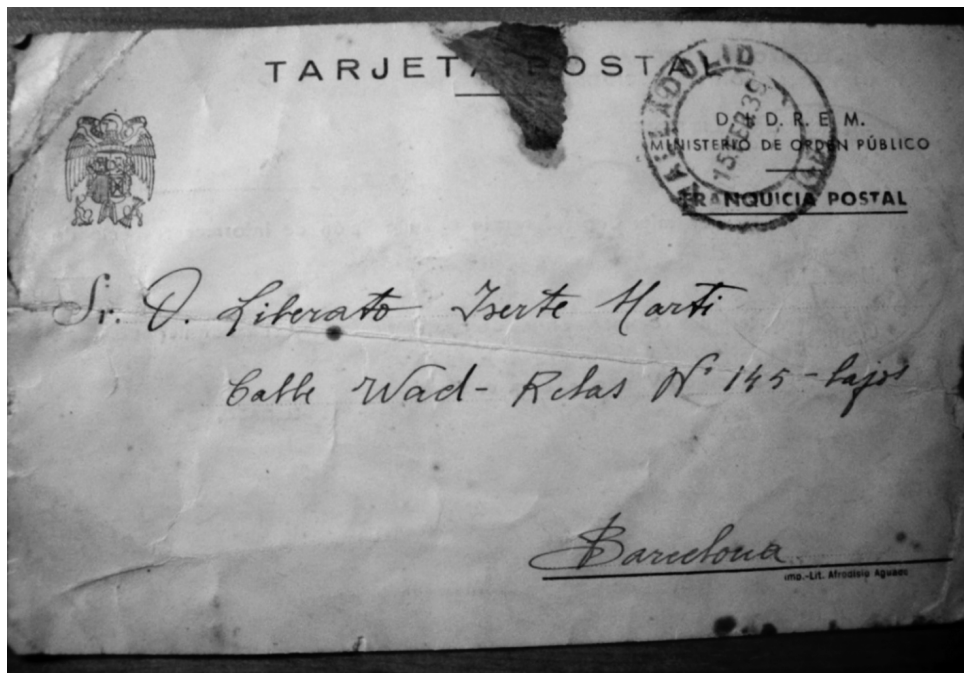 TARJETA POSTAL
VALLADOLID
15 FEB 39
D. I. D. R. E. M.
MINISTERIO DE ORDEN PÚBLICO
FRANQUICIA POSTAL
Sr. D. Liberato Iserte Marti
Calle Wad-Relas Nº 145-bajos
Barcelona
Imp.-Lit. Afrodisio Aguado